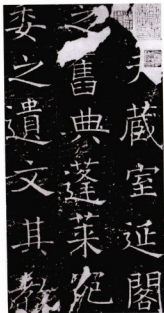 夫藏室延閣
之舊典蓬萊宛
委之遺文其